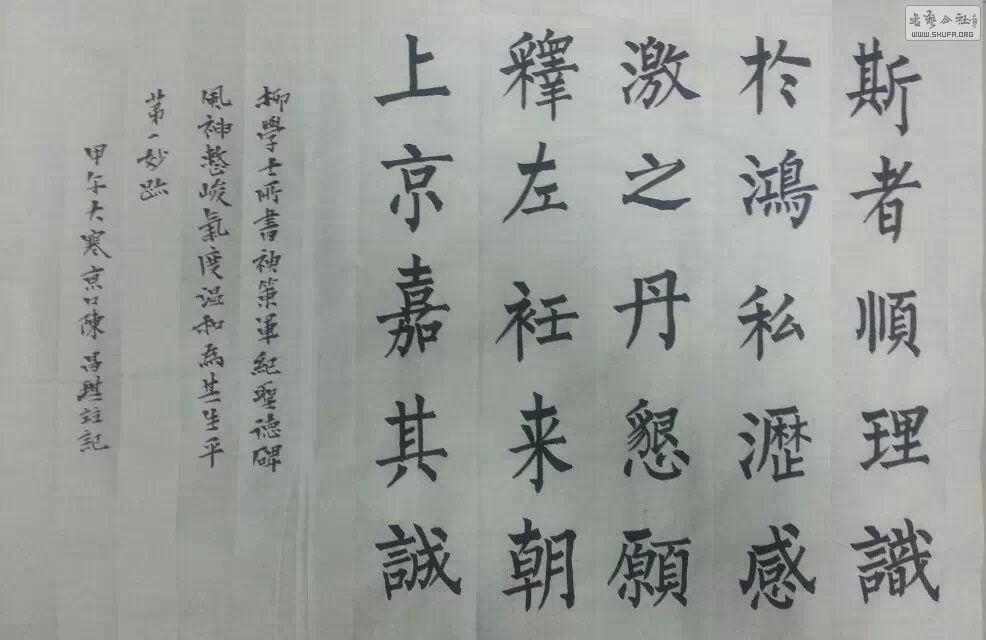 斯者順理識
於鴻私瀝感
激之丹懇願
釋左衽来朝
上京嘉其誠
柳學士所書神策軍紀聖德碑
風神整峻氣度温和為其生平
第一妙跡
甲午大寒京口陳昌駐記
書藝公社
WWW.SHUFA.ORG